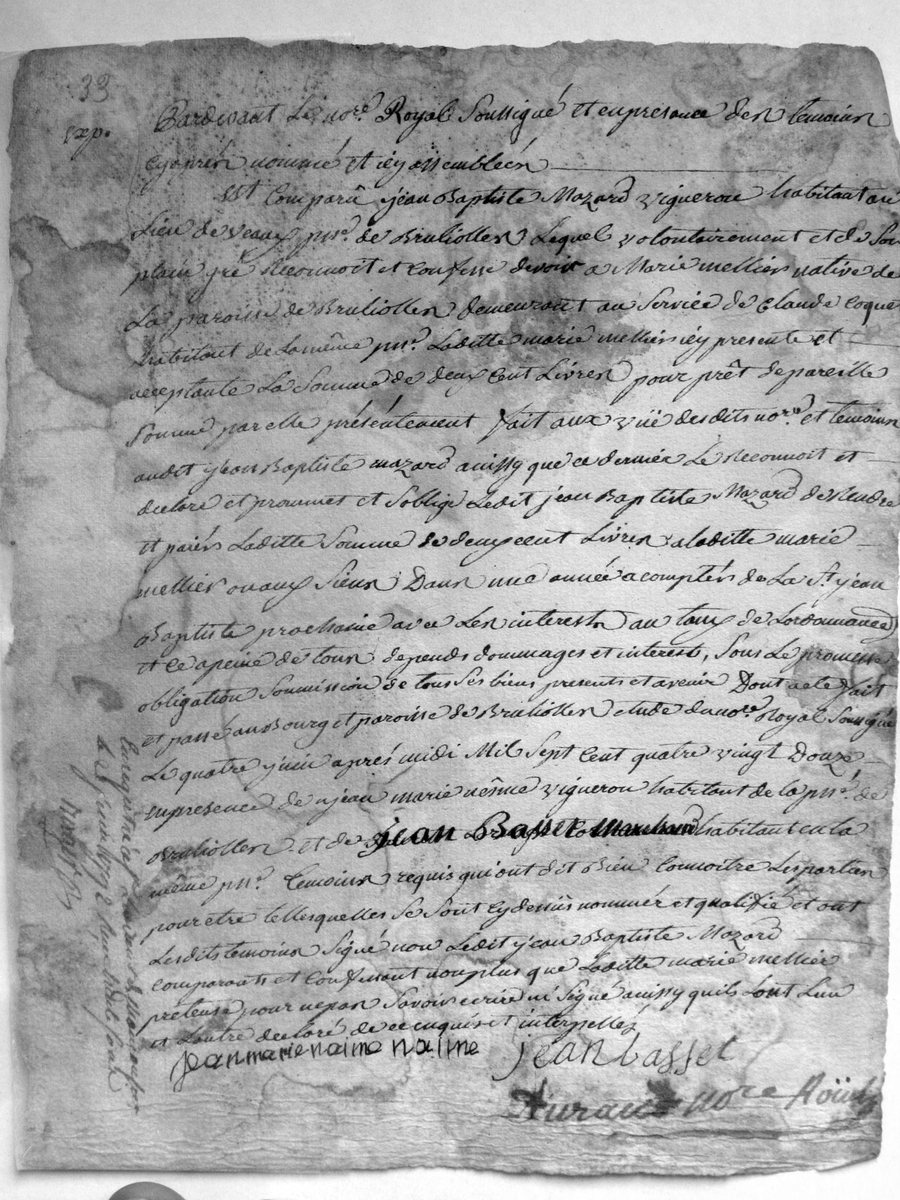 33
exp.
Pardevant Le no.re Royal Soussigné et en presence des temoins
cy après nommé et icy assemblées
Est Comparû jean Baptiste Mazard vigneron habitant au
Lieu de Veaux p.sse de Brulliolles Lequel volontairement et de Son
plain gré Reconnoit et Confesse devoir a Marie mellier native de
La paroisse de Brulliolles demeurant au Service de Claude Coque
habitant de la même p.sse Laditte marie mellier icy presente et
acceptante La Somme de deux Cent Livres pour prêt de pareille
Somme par elle présentement fait aux vüe desdits no.re et temoins
audit jean Baptiste mazard ainssy que ce dernier Le Reconnoit et
declare et prommet et Soblige Ledit jean Baptiste Mazard de Rendre
et païer Laditte Somme de deux cent Livres a laditte marie
mellier ou aux Siens Dans une année a compter de La S.t jean
Baptiste prochaine avec Les interests au taux de Lordonnance
et Ce a peine de tous depends dommages et interests, Sous Le promesse
obligation Soumission de tous Ses biens presents et avenir Dont acte fait
et passé au Bourg et paroisse de Brulliolles etude du no.re Royal Soussigné
Le quatre juin après midi Mil Sept Cent quatre vingt Douze
en presence de jean marie nesme vigneron habitant de la p.sse de
Brulliolles et de jean Basset habitant en la
même p.sse temoins requis qui ont dit Bien Connoitre Les parties
pour etre telles quelles Se Sont cy dessüs nommer et qualifié et ont
Lesdits temoins Signé non Ledit jean Baptiste Mazard
comparant et Confessant non plus que Laditte marie mellier
preteuse pour ne pas Savoir ecrire ni Signé ainssy quils Lont Lun
et Lautre declaré de ce enquis et interpellez
jean marie naime naime jean basset
no.re
Enregistré a
le juin 1792